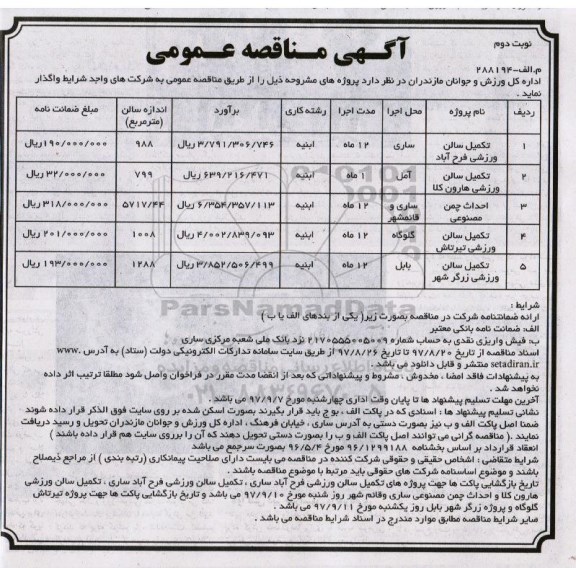 نوبت دوم
آگهی مناقصه عمومی
م.الف-۲۸۸۱۹۴
اداره کل ورزش و جوانان مازندران در نظر دارد پروژه های مشروحه ذیل را از طریق مناقصه عمومی به شرکت های واجد شرایط واگذار
نماید .
ردیف نام پروژه محل اجرا مدت اجرا رشته کاری برآورد اندازه سالن (مترمربع) مبلغ ضمانت نامه
۱ تکمیل سالن ورزشی فرح آباد ساری ۱۲ ماه ابنیه ۳/۷۹۱/۳۰۶/۷۴۶ ریال ۹۸۸ ۱۹۰/۰۰۰/۰۰۰ریال
۲ تکمیل سالن ورزشی هارون کلا آمل ۱ ماه ابنیه ۶۳۹/۲۱۶/۴۷۱ ریال ۷۹۹ ۳۲/۰۰۰/۰۰۰ ریال
۳ احداث چمن مصنوعی ساری و قائمشهر ۱۲ ماه ابنیه ۶/۳۵۴/۳۵۷/۱۱۳ ریال ۵۷۱۷/۴۴ ۳۱۸/۰۰۰/۰۰۰ ریال
۴ تکمیل سالن ورزشی تیرتاش گلوگاه ۱۲ ماه ابنیه ۴/۰۰۲/۸۳۹/۰۹۳ ریال ۱۰۰۸ ۲۰۱/۰۰۰/۰۰۰ ریال
۵ تکمیل سالن ورزشی زرگر شهر بابل ۱۲ ماه ابنیه ۳/۸۵۲/۵۰۶/۴۹۹ ریال ۱۲۸۸ ۱۹۳/۰۰۰/۰۰۰ ریال
ParsNamadData
شرایط :
ارائه ضمانتنامه شرکت در مناقصه بصورت زیر( یکی از بندهای الف یا ب )
الف: ضمانت نامه بانکی معتبر
ب: فیش واریزی نقدی به حساب شماره ۲۱۷۰۵۵۵۰۰۵۰۰۹ نزد بانک ملی شعبه مرکزی ساری
اسناد مناقصه از تاریخ ۹۷/۸/۲۰ تا تاریخ ۹۷/۸/۲۶ از طریق سایت سامانه تدارکات الکترونیکی دولت (ستاد) به آدرس www.
setadiran.ir منتشر و قابل دانلود می باشد .
به پیشنهادات فاقد امضا ، مخدوش ، مشروط و پیشنهاداتی که بعد از انقضا مدت مقرر در فراخوان واصل شود مطلقا ترتیب اثر داده
نخواهد شد .
آخرین مهلت تسلیم پیشنهاد ها تا پایان وقت اداری چهارشنبه مورخ ۹۷/۹/۷ می باشد .
نشانی تسلیم پیشنهاد ها : اسنادی که در پاکت الف ، ب و ج باید قرار بگیرند بصورت اسکن شده بر روی سایت فوق الذکر قرار داده شوند
ضمنا اصل پاکت الف و ب نیز بصورت دستی به آدرس ساری ، خیابان فرهنگ ، اداره کل ورزش و جوانان مازندران تحویل و رسید دریافت
نمایند .( مناقصه گرانی می توانند اصل پاکت الف و ب را بصورت دستی تحویل دهند که آن را برروی سایت هم قرار داده باشند )
انعقاد قرارداد بر اساس بخشنامه ۹۶/۱۲۹۹۱۸۸ مورخ ۹۶/۵/۴ بصورت سرجمع می باشد
شرایط متقاضی : اشخاص حقیقی و حقوقی شرکت کننده در مناقصه می بایست دارای صلاحیت پیمانکاری (رتبه بندی ) از مراجع ذیصلاح
باشند و موضوع اساسنامه شرکت های حقوقی باید مرتبط با موضوع مناقصه باشند .
تاریخ بازگشایی پاکت ها جهت پروژه های تکمیل سالن ورزشی فرح آباد ساری ، تکمیل سالن ورزشی فرح آباد ساری ، تکمیل سالن ورزشی
هارون کلا و احداث چمن مصنوعی ساری وقائم شهر روز شنبه مورخ ۹۷/۹/۱۰ می باشد و تاریخ بازگشایی پاکت ها جهت پروژه تیرتاش
گلوگاه و پروژه زرگر شهر بابل روز یکشنبه مورخ ۹۷/۹/۱۱ می باشد .
سایر شرایط مناقصه مطابق موارد مندرج در اسناد شرایط مناقصه می باشد .